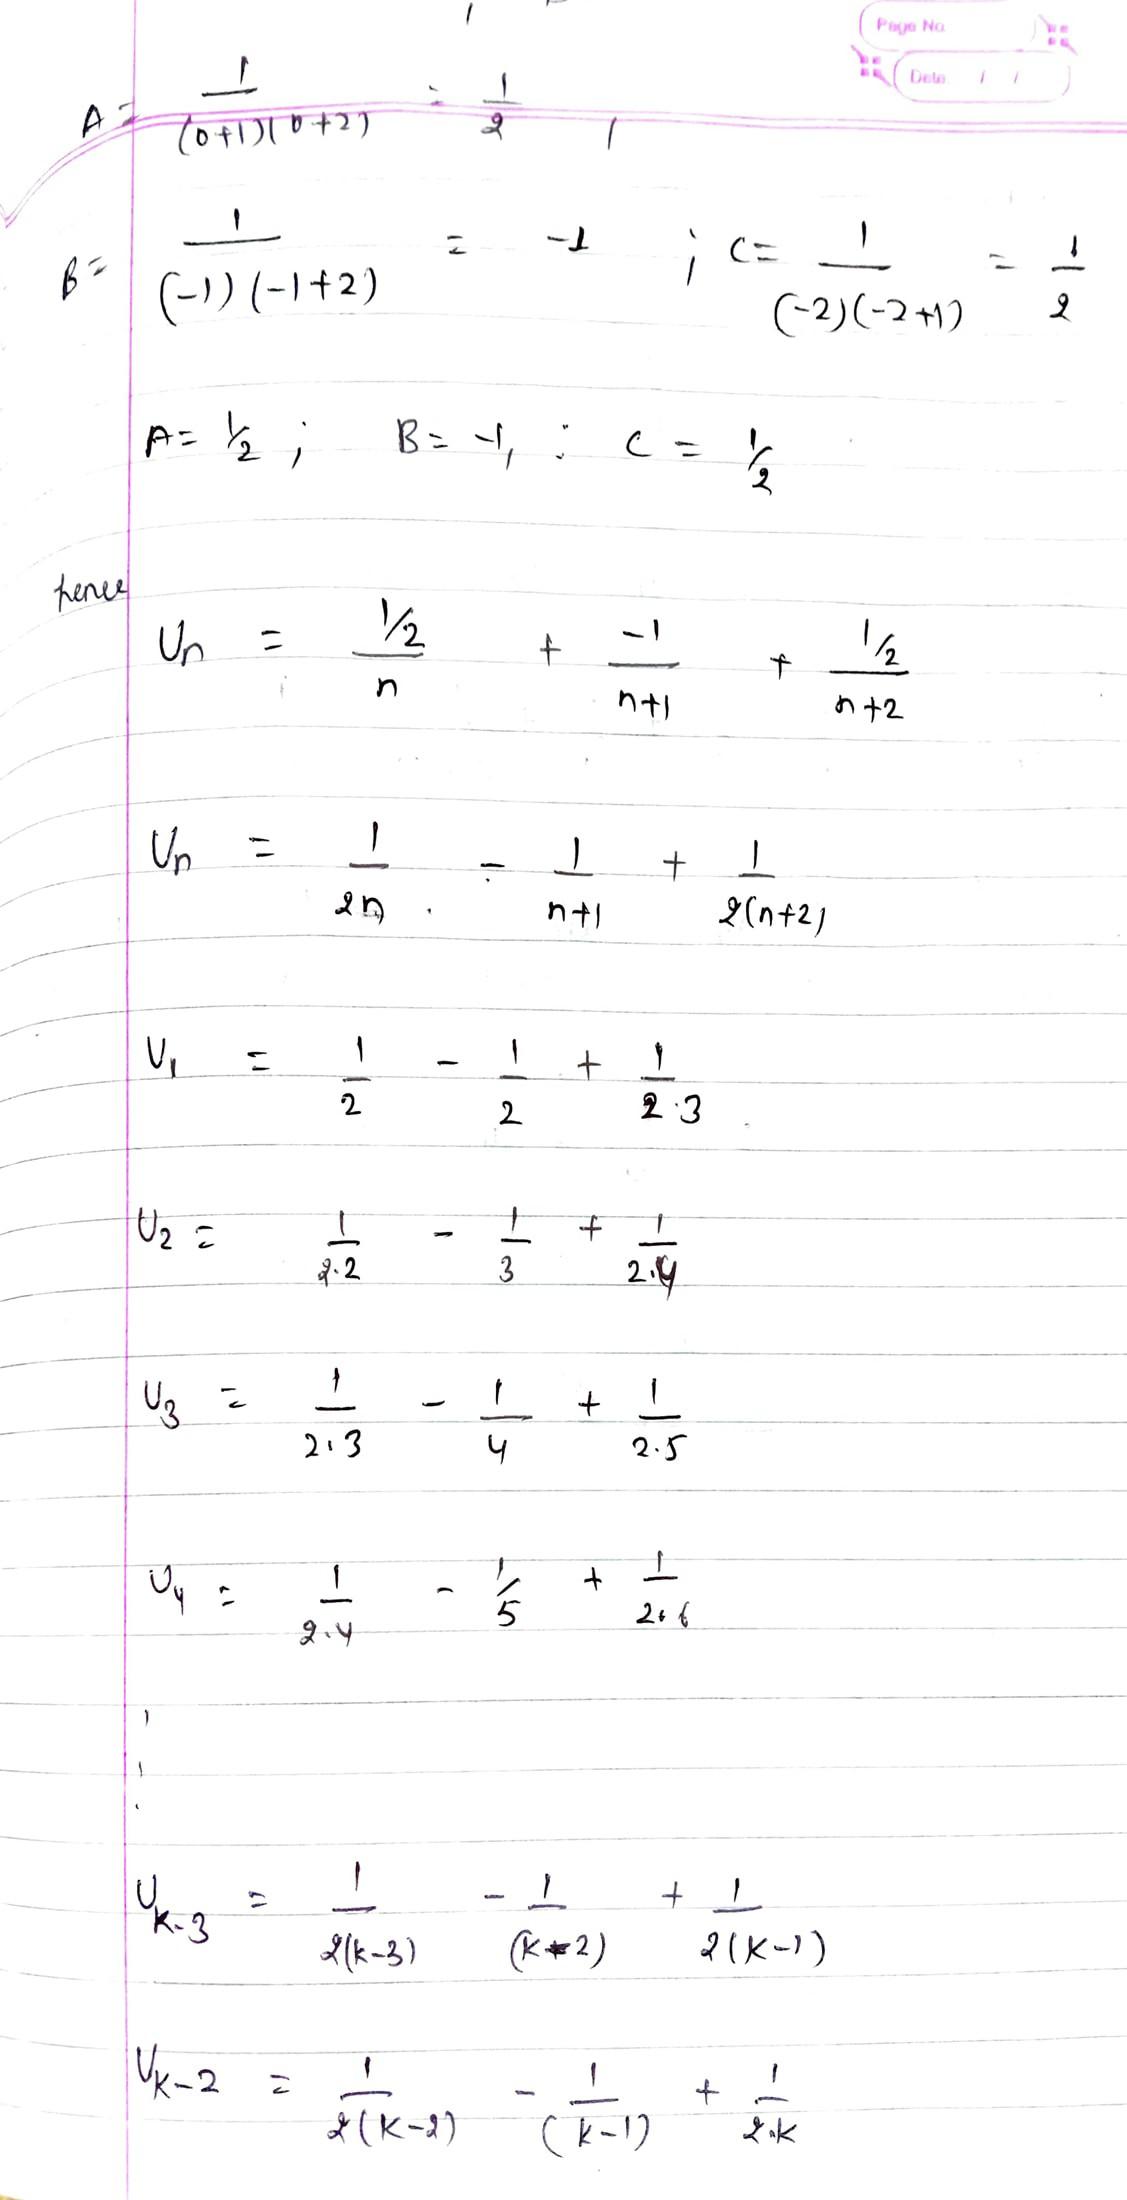 Page No.
Date / /
A = 1/(0+1)(0+2) = 1/2
B = 1/(-1)(-1+2) = -1 ; C = 1/(-2)(-2+1) = 1/2
A = 1/2 ; B = -1, : C = 1/2
hence
Un = 1/2/n + -1/n+1 + 1/2/n+2
Un = 1/2n - 1/n+1 + 1/2(n+2)
U1 = 1/2 - 1/2 + 1/2.3
U2 = 1/2.2 - 1/3 + 1/2.4
U3 = 1/2.3 - 1/4 + 1/2.5
U4 = 1/2.4 - 1/5 + 1/2.6
Uk-3 = 1/2(k-3) - 1/(k-2) + 1/2(k-1)
Uk-2 = 1/2(k-2) - 1/(k-1) + 1/2.k